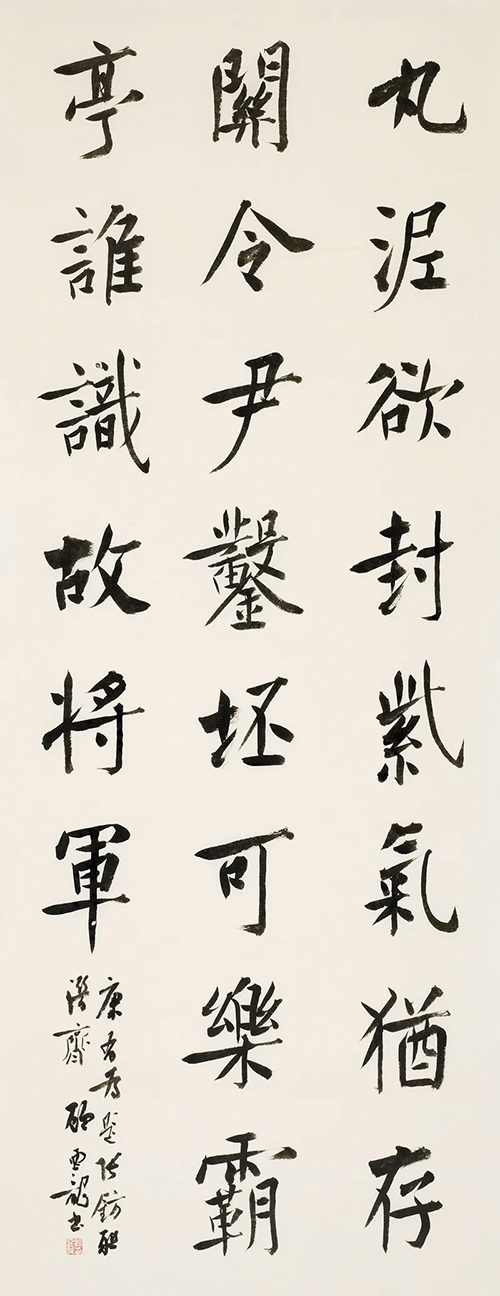 丸泥欲封紫氣猶存
關令尹鑿坯可樂霸
亭誰識故將軍
康有為題張鈁聯
潛齋 顧